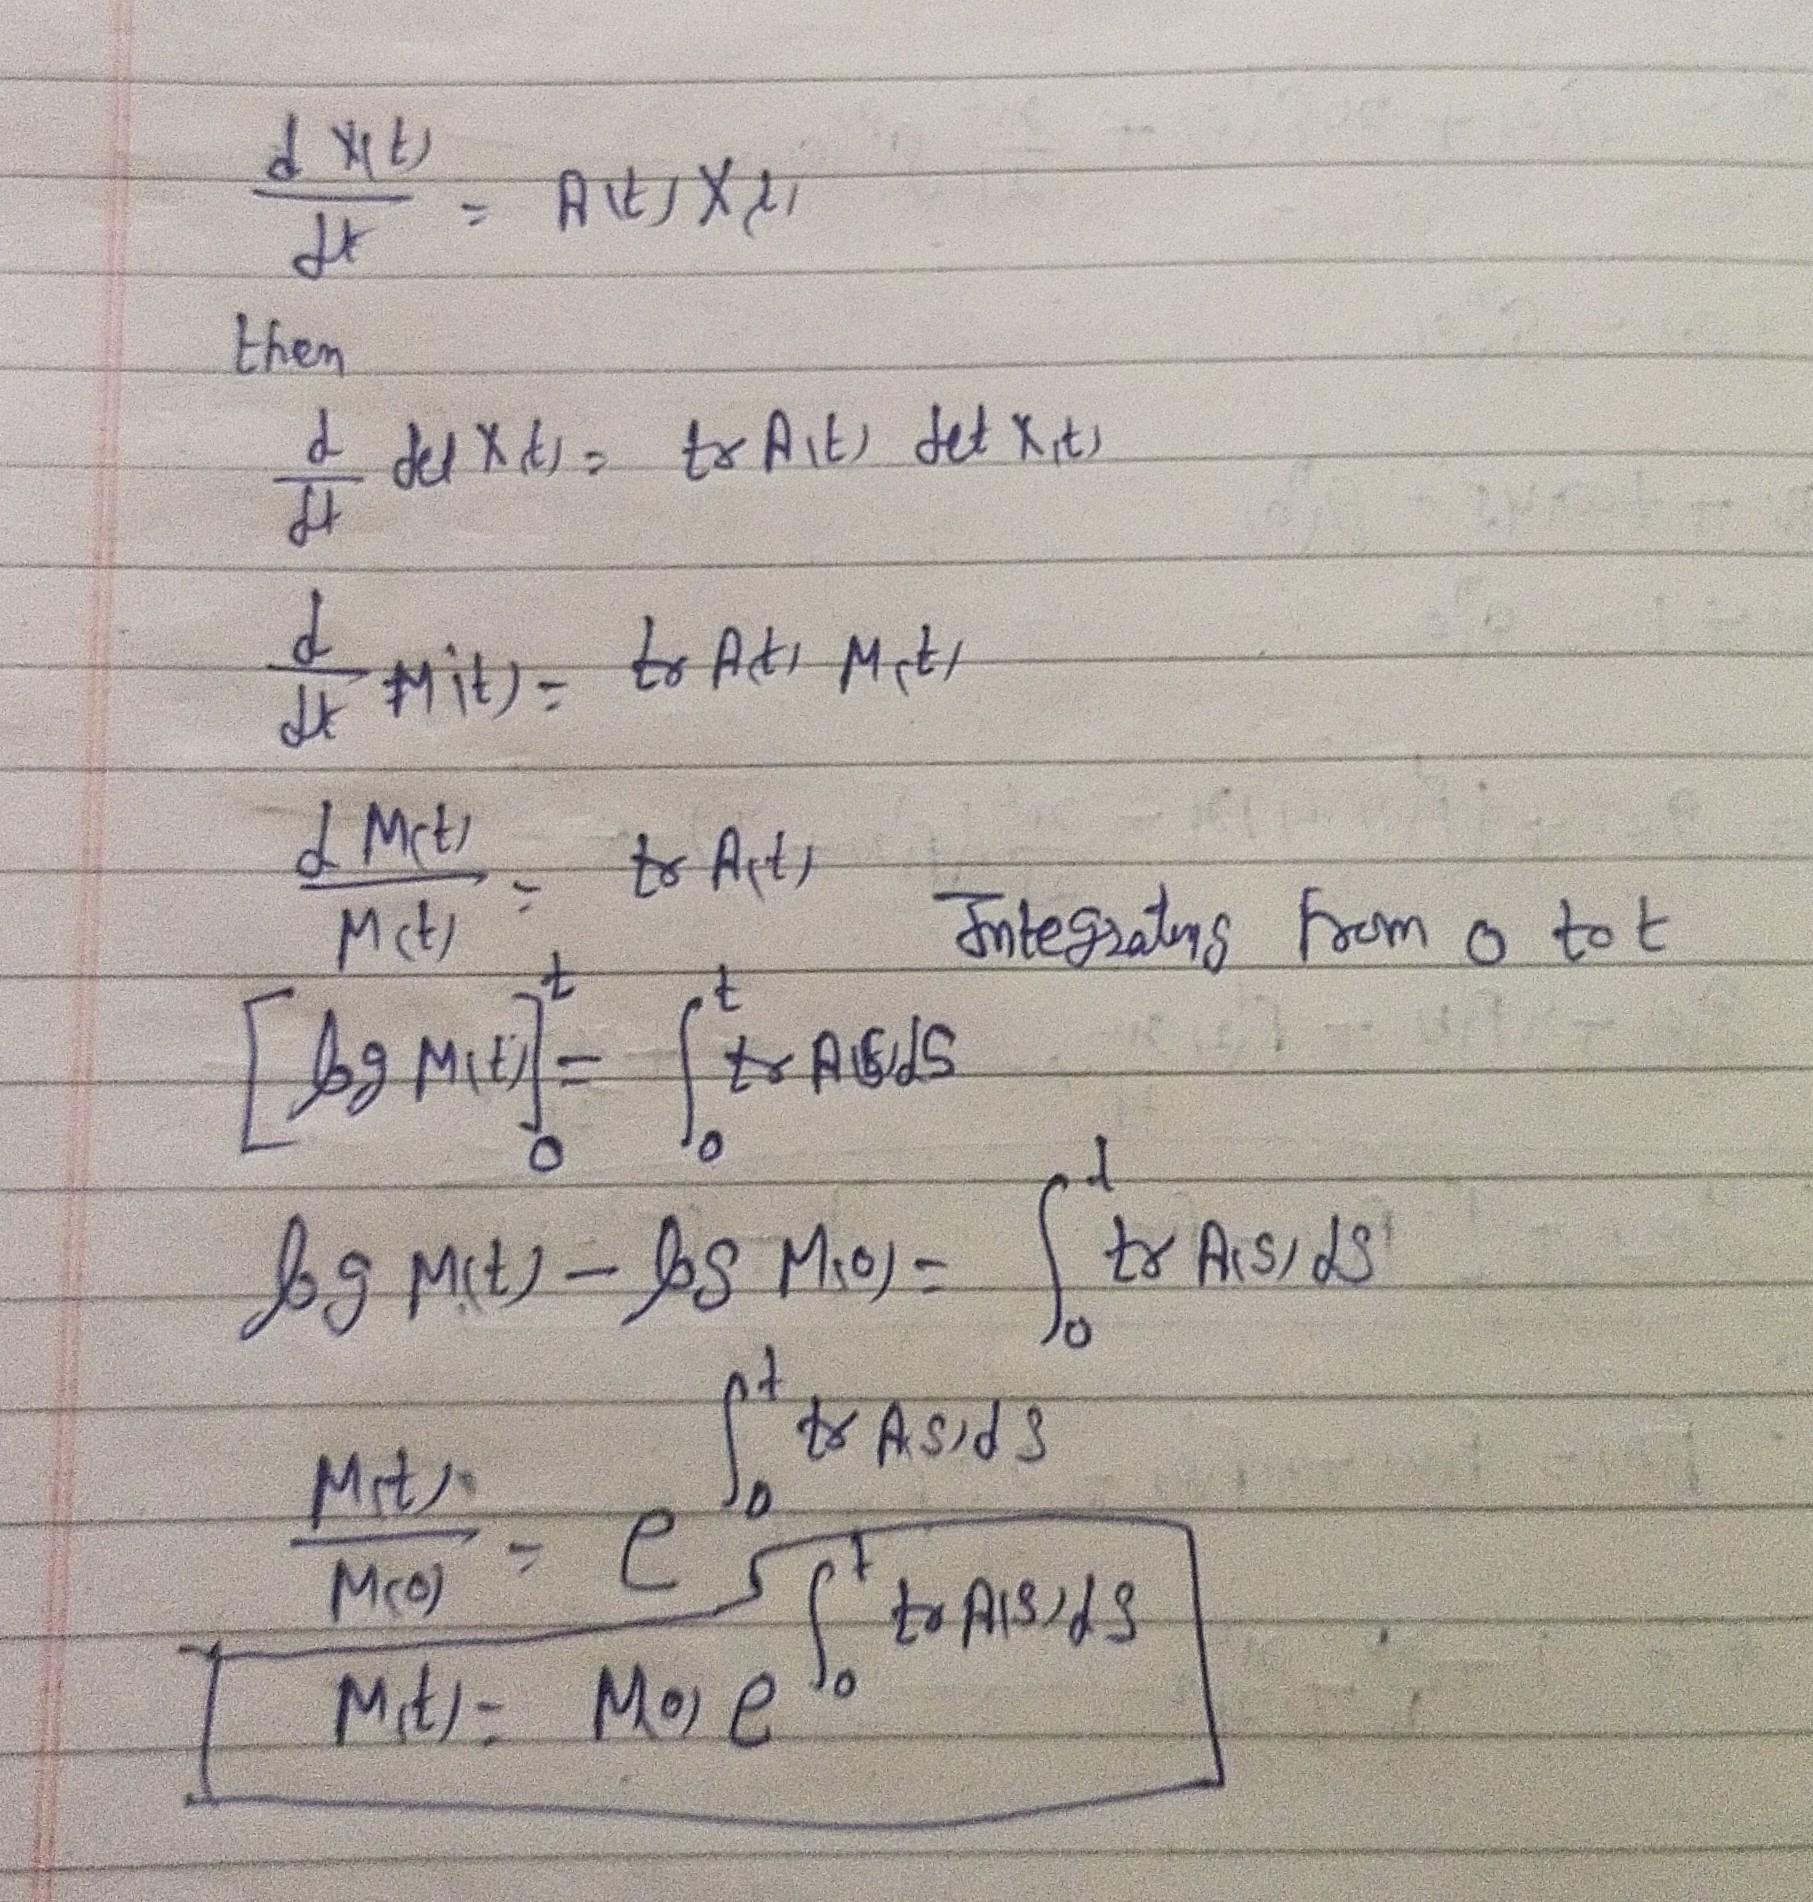 d X(t) / dt = A(t) X(t)
then
d/dt det X(t) = tr A(t) det X(t)
d/dt M(t) = tr A(t) M(t)
d M(t) / M(t) = tr A(t) Integrating from 0 to t
[log M(t)]_0^t = ∫_0^t tr A(s) ds
log M(t) - log M(0) = ∫_0^t tr A(s) ds
M(t) / M(0) = e^{∫_0^t tr A(s) ds}
M(t) = M(0) e^{∫_0^t tr A(s) ds}